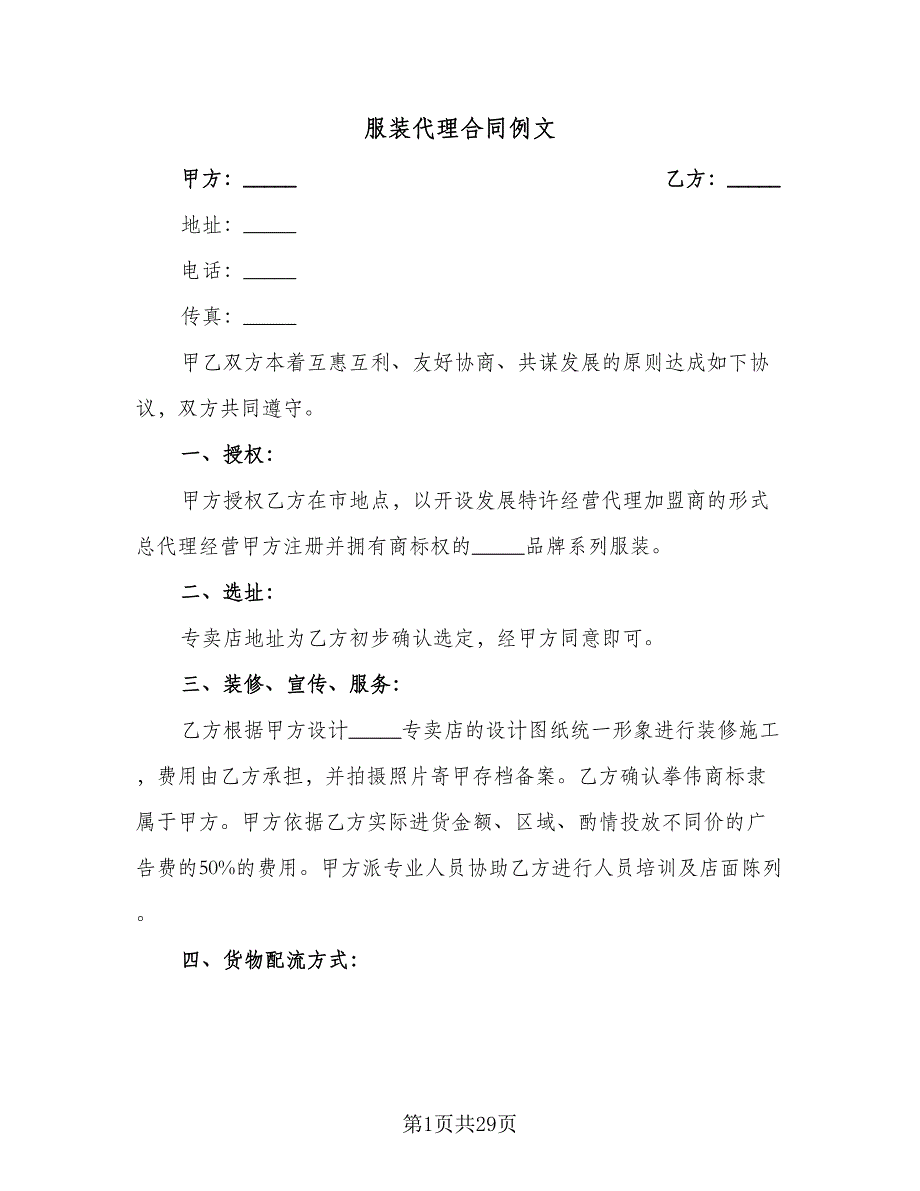 服装代理合同例文
甲方：_____ 乙方：_____
地址：_____
电话：_____
传真：_____
甲乙双方本着互惠互利、友好协商、共谋发展的原则达成如下协
议，双方共同遵守。
一、授权：
甲方授权乙方在市地点，以开设发展特许经营代理加盟商的形式
总代理经营甲方注册并拥有商标权的_____品牌系列服装。
二、选址：
专卖店地址为乙方初步确认选定，经甲方同意即可。
三、装修、宣传、服务：
乙方根据甲方设计_____专卖店的设计图纸统一形象进行装修施工
，费用由乙方承担，并拍摄照片寄甲存档备案。乙方确认拳伟商标隶
属于甲方。甲方依据乙方实际进货金额、区域、酌情投放不同价的广
告费的50%的费用。甲方派专业人员协助乙方进行人员培训及店面陈列
。
四、货物配流方式：
第1页共29页